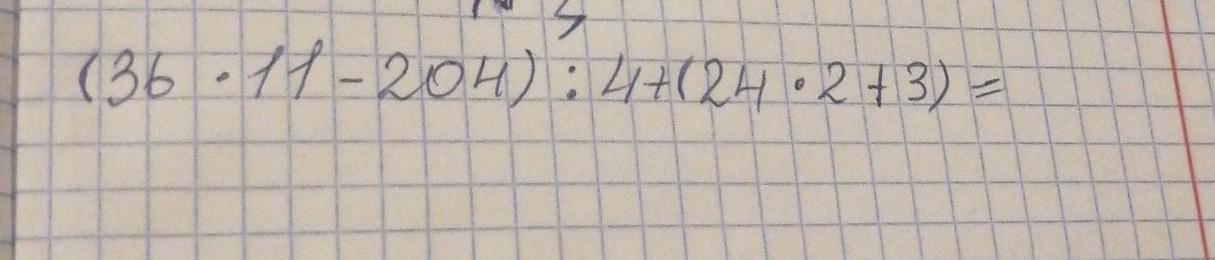 (36 · 11 - 204) : 4 + (24 · 2 + 3) =